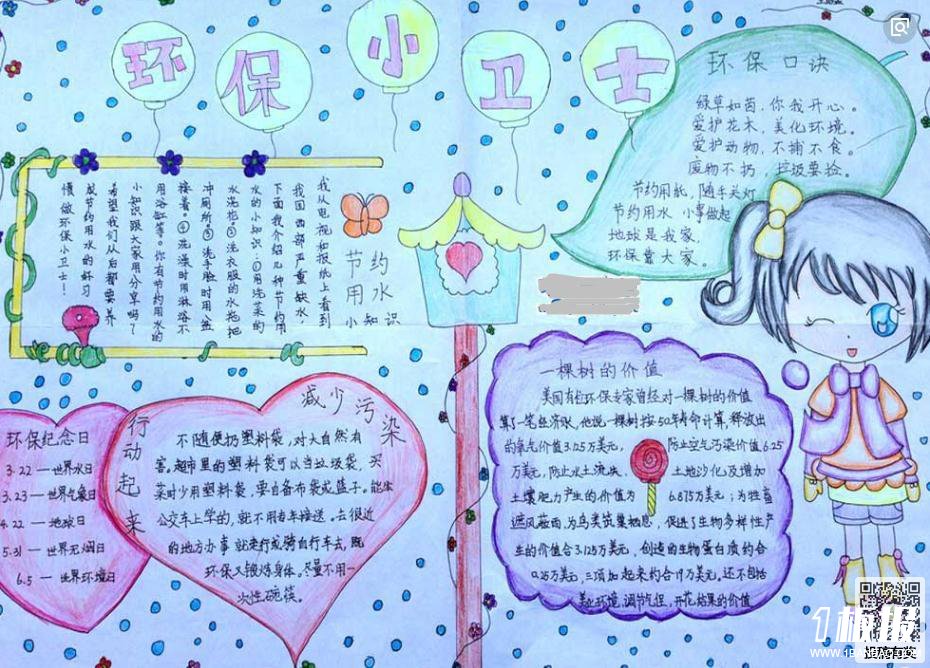 环保小卫士
环保口诀
绿草如茵，你我开心。
爱护花木，美化环境。
爱护动物，不捕不食。
废物不扔，垃圾要捡。
节约用纸，随手关灯
节约用水 小事做起
地球是我家，
环保靠大家。
节约
用水
小知识
我从电视和报纸上看到
我国西部严重缺水，
下面我介绍几种节约用
水的小知识：①用洗菜的
水洗拖②洗衣服的水拖把
冲厕所。③洗手脸时用盆
接着。④洗澡时用淋浴不
用浴缸等。你有节约用水的
小知识跟大家用分享吗？
希望我们从后都要养
成节约用水的好习
惯做环保小卫士！
环保纪念日
3.22—世界水日
3.23—世界气象日
4.22—地球日
5.31—世界无烟日
6.5—世界环境日
行动起来
减少污染
不随便扔塑料袋，对大自然有
害。超市里的塑料袋可以当垃圾袋，买
菜时少用塑料袋，要自备布袋或篮子。能坐
公交车上学的，就不用专车接送。去很近
的地方办事就走行或骑自行车去，既
环保又锻炼身体。尽量不用一
次性碗筷。
一棵树的价值
美国有位环保专家曾经对一棵树的价值
算了一笔经济账，他说一棵树按50年寿命计算，释放出
的氧气价值3.125万美元，防止空气污染价值6.25
万美元，防止水土流失、土地沙化及增加
土壤肥力产生的价值为6.875万美元；为牲畜
遮风蔽雨，为鸟类筑巢栖息，促进了生物多样性产
生的价值合3.125万美元，创造的生物蛋白质约合
0.25万美元，三项加起来约合19万美元。还不包括
美化环境，调节气侯，开花结果的价值
1板报
WWW.1BANBAO.COM